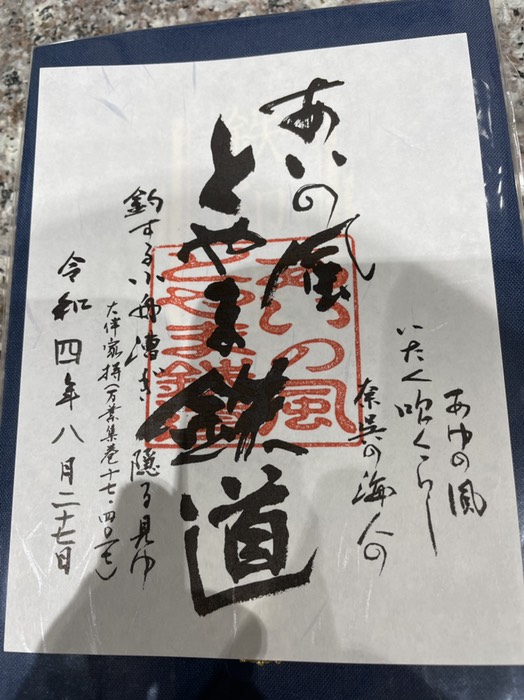 あゆの風
いたく吹くらし
奈呉の海人の
あいの風
とやま鉄道
釣する小舟漕ぎ隠る見ゆ
大伴家持(万葉集巻十七・四〇一七)
令和四年八月二十七日